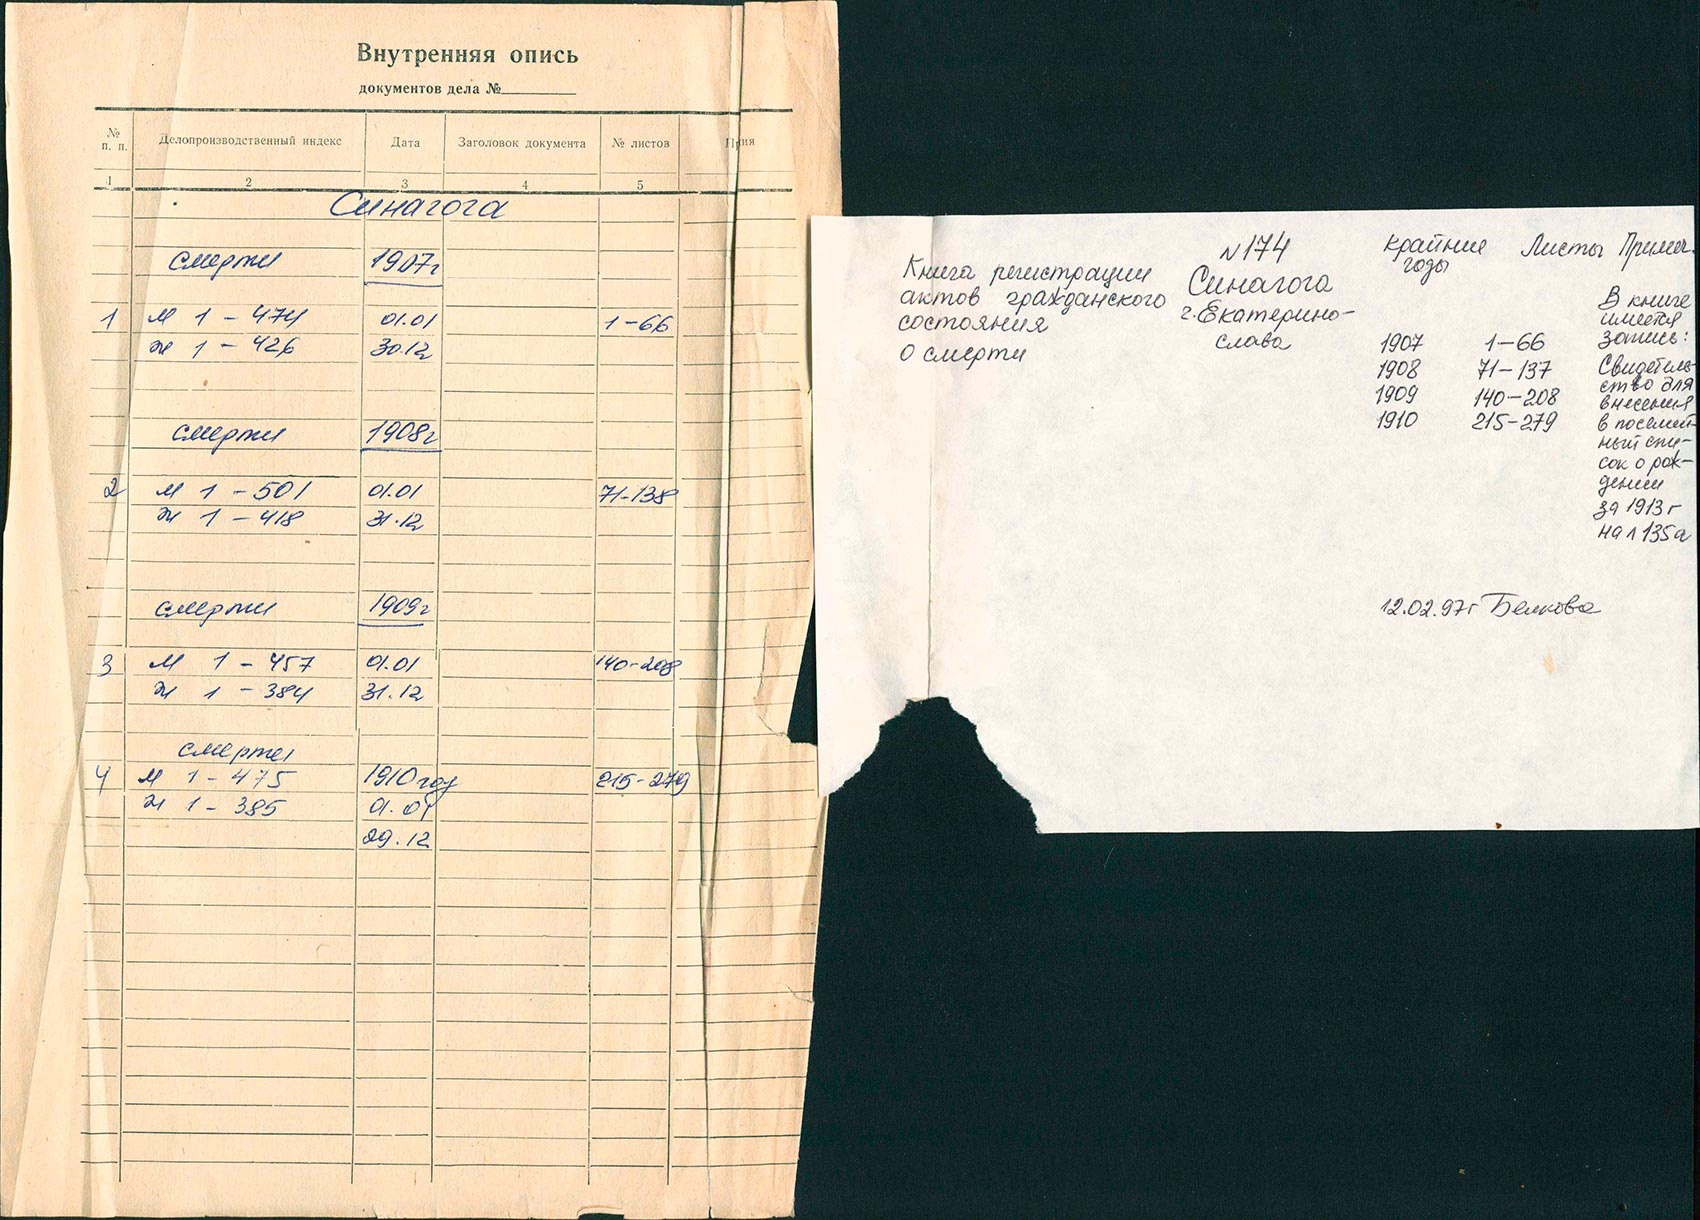 Внутренняя опись
документов дела №
№ п. п. Делопроизводственный индекс Дата Заголовок документа № листов
1 2 3 4 5
Синагога
смерти 1907г
1 М 1 - 474 01.01 1-66
Ж 1 - 426 30.12
смерти 1908г
2 М 1 - 501 01.01 71-138
Ж 1 - 418 31.12
смерти 1909г
3 М 1 - 457 01.01 140-208
Ж 1 - 384 31.12
смерти
4 М 1 - 475 1910 году 215-279
Ж 1 - 385 01.01
29.12
Книга регистрации
актов гражданского
состояния
о смерти
№174
Синагога
г. Екатерино-
слава
крайние
годы
1907
1908
1909
1910
Листы
1-66
71-137
140-208
215-279
Примеч.
В книге
имеется
запись:
Свидетель-
ство для
внесения
в посемей-
ный спи-
сок о рож-
дении
за 1913г
на л 135а
12.02.97г Белкова